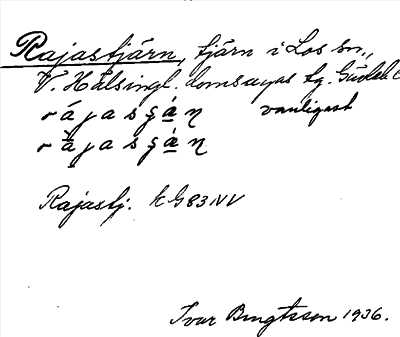 Rajastjärn, tjärn i Los sn.,
V. Hälsingl. domsagas tg. Gävleb
rájasʂàɳ vanligast
rǎjasʂàɳ
Rajastj. k G83NV
Ivar Bengtsson 1936.